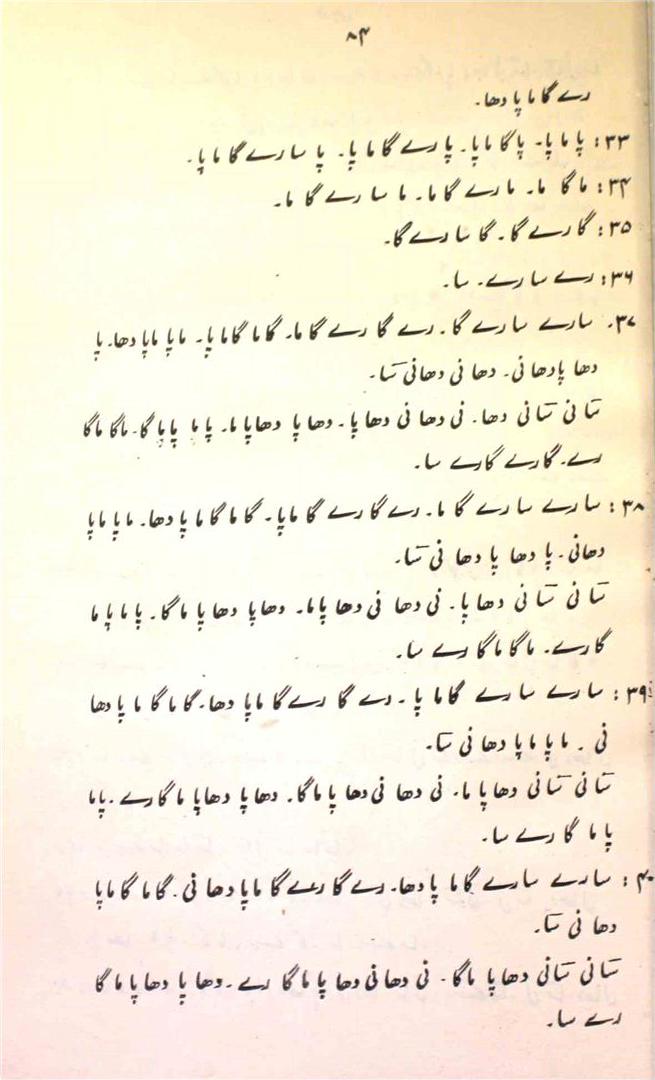 ۸۴
رے گا ما پا دھا۔
۳۳: پا ما پا۔ پا گا ما پا۔ پا رے گا ما پا۔ پا سا رے گا ما پا۔
۳۴: ما گا ما۔ ما رے گا ما۔ ما سا رے گا ما۔
۳۵: گا رے گا۔ گا سا رے گا۔
۳۶: رے سا رے۔ سا۔
۳۷۔ سا رے سا رے گا۔ رے گا رے گا ما۔ گا ما گا ما پا۔ ما پا ما پا دھا۔ پا
دھا پا دھا نی۔ دھا نی دھا نی سَا۔
سَا نی سَا نی دھا۔ نی دھا نی دھا پا۔ دھا پا دھا پا ما۔ پا ما پا پا گا۔ ما گا ما گا
رے۔ گا رے گا رے سا۔
۳۸: سا رے سا رے گا ما۔ رے گا رے گا ما پا۔ گا ما گا ما پا دھا۔ ما پا ما پا
دھا نی۔ پا دھا پا دھا نی سَا۔
سَا نی سَا نی دھا پا۔ نی دھا نی دھا پا ما۔ دھا پا دھا پا ما گا۔ پا ما پا ما
گا رے۔ ما گا ما گا رے سا۔
۳۹: سا رے سا رے گا ما پا۔ رے گا رے گا ما پا دھا۔ گا ما گا ما پا دھا
نی ۔ ما پا ما پا دھا نی سَا۔
سَا نی سَا نی دھا پا ما۔ نی دھا نی دھا پا ما گا۔ دھا پا دھا پا ما گا رے۔ پا ما
پا ما گا رے سا۔
۴۰: سا رے سا رے گا ما پا دھا۔ رے گا رے گا ما پا دھا نی۔ گا ما گا ما پا
دھا نی سَا۔
سَا نی سَا نی دھا پا ما گا۔ نی دھا نی دھا پا ما گا رے۔ دھا پا دھا پا ما گا
رے سا۔